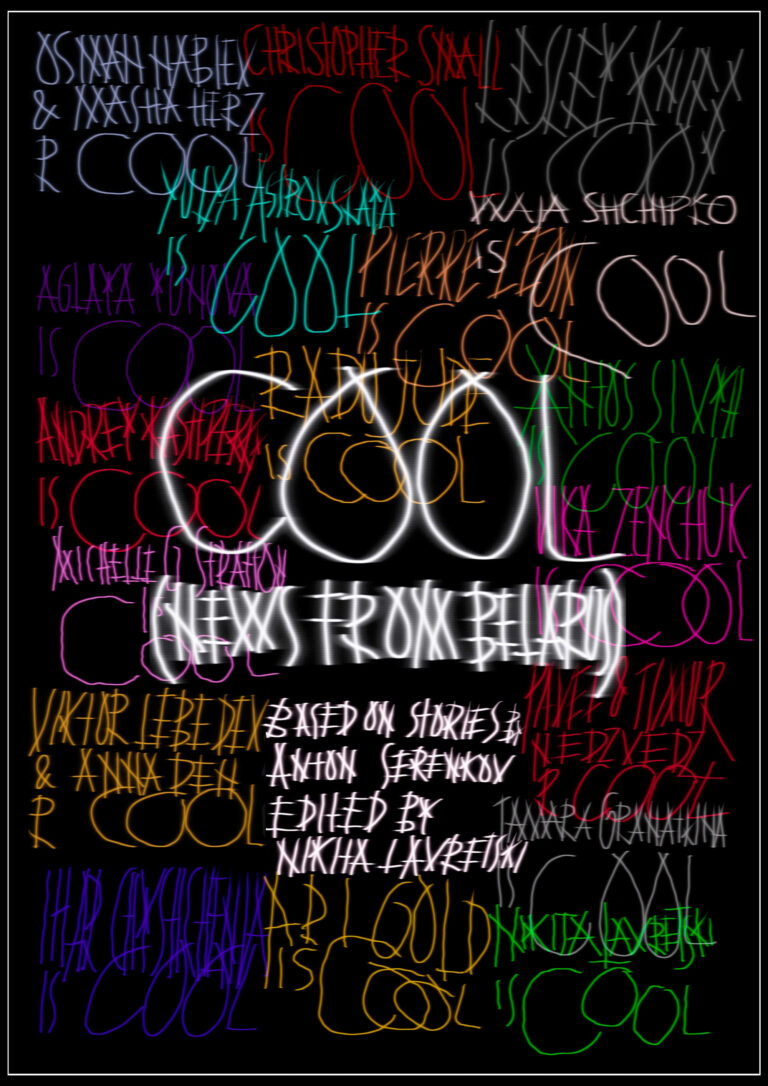 OSMAN NABIEV
& MASHA HERZ
R COOL
CHRISTOPHER SMALL
IS COOL
LESLEY
IS COOL
YULIYA
IS COOL
SHCHIPKO
IS COOL
PIERRE LEON
IS COOL
AGLAYA
IS COOL
RADU JUDE
IS COOL
IS COOL
ANDREY KASHPERSKI
IS COOL
VIKA ZENCHUK
IS COOL
MICHELLE
IS COOL
COOL
(NEWS FROM BELARUS)
VIKTOR LEBEDEV
& ANNA DEN
R COOL
BASED ON STORIES BY
ANTON SERENKOV
EDITED BY
NIKITA LAVRETSKI
PAVEL & TIMUR
NEDZVEDZ
R COOL
TAMARA GRANATKINA
IS COOL
IHAR
IS COOL
ARI GOLD
IS COOL
NIKITA LAVRETSKI
IS COOL